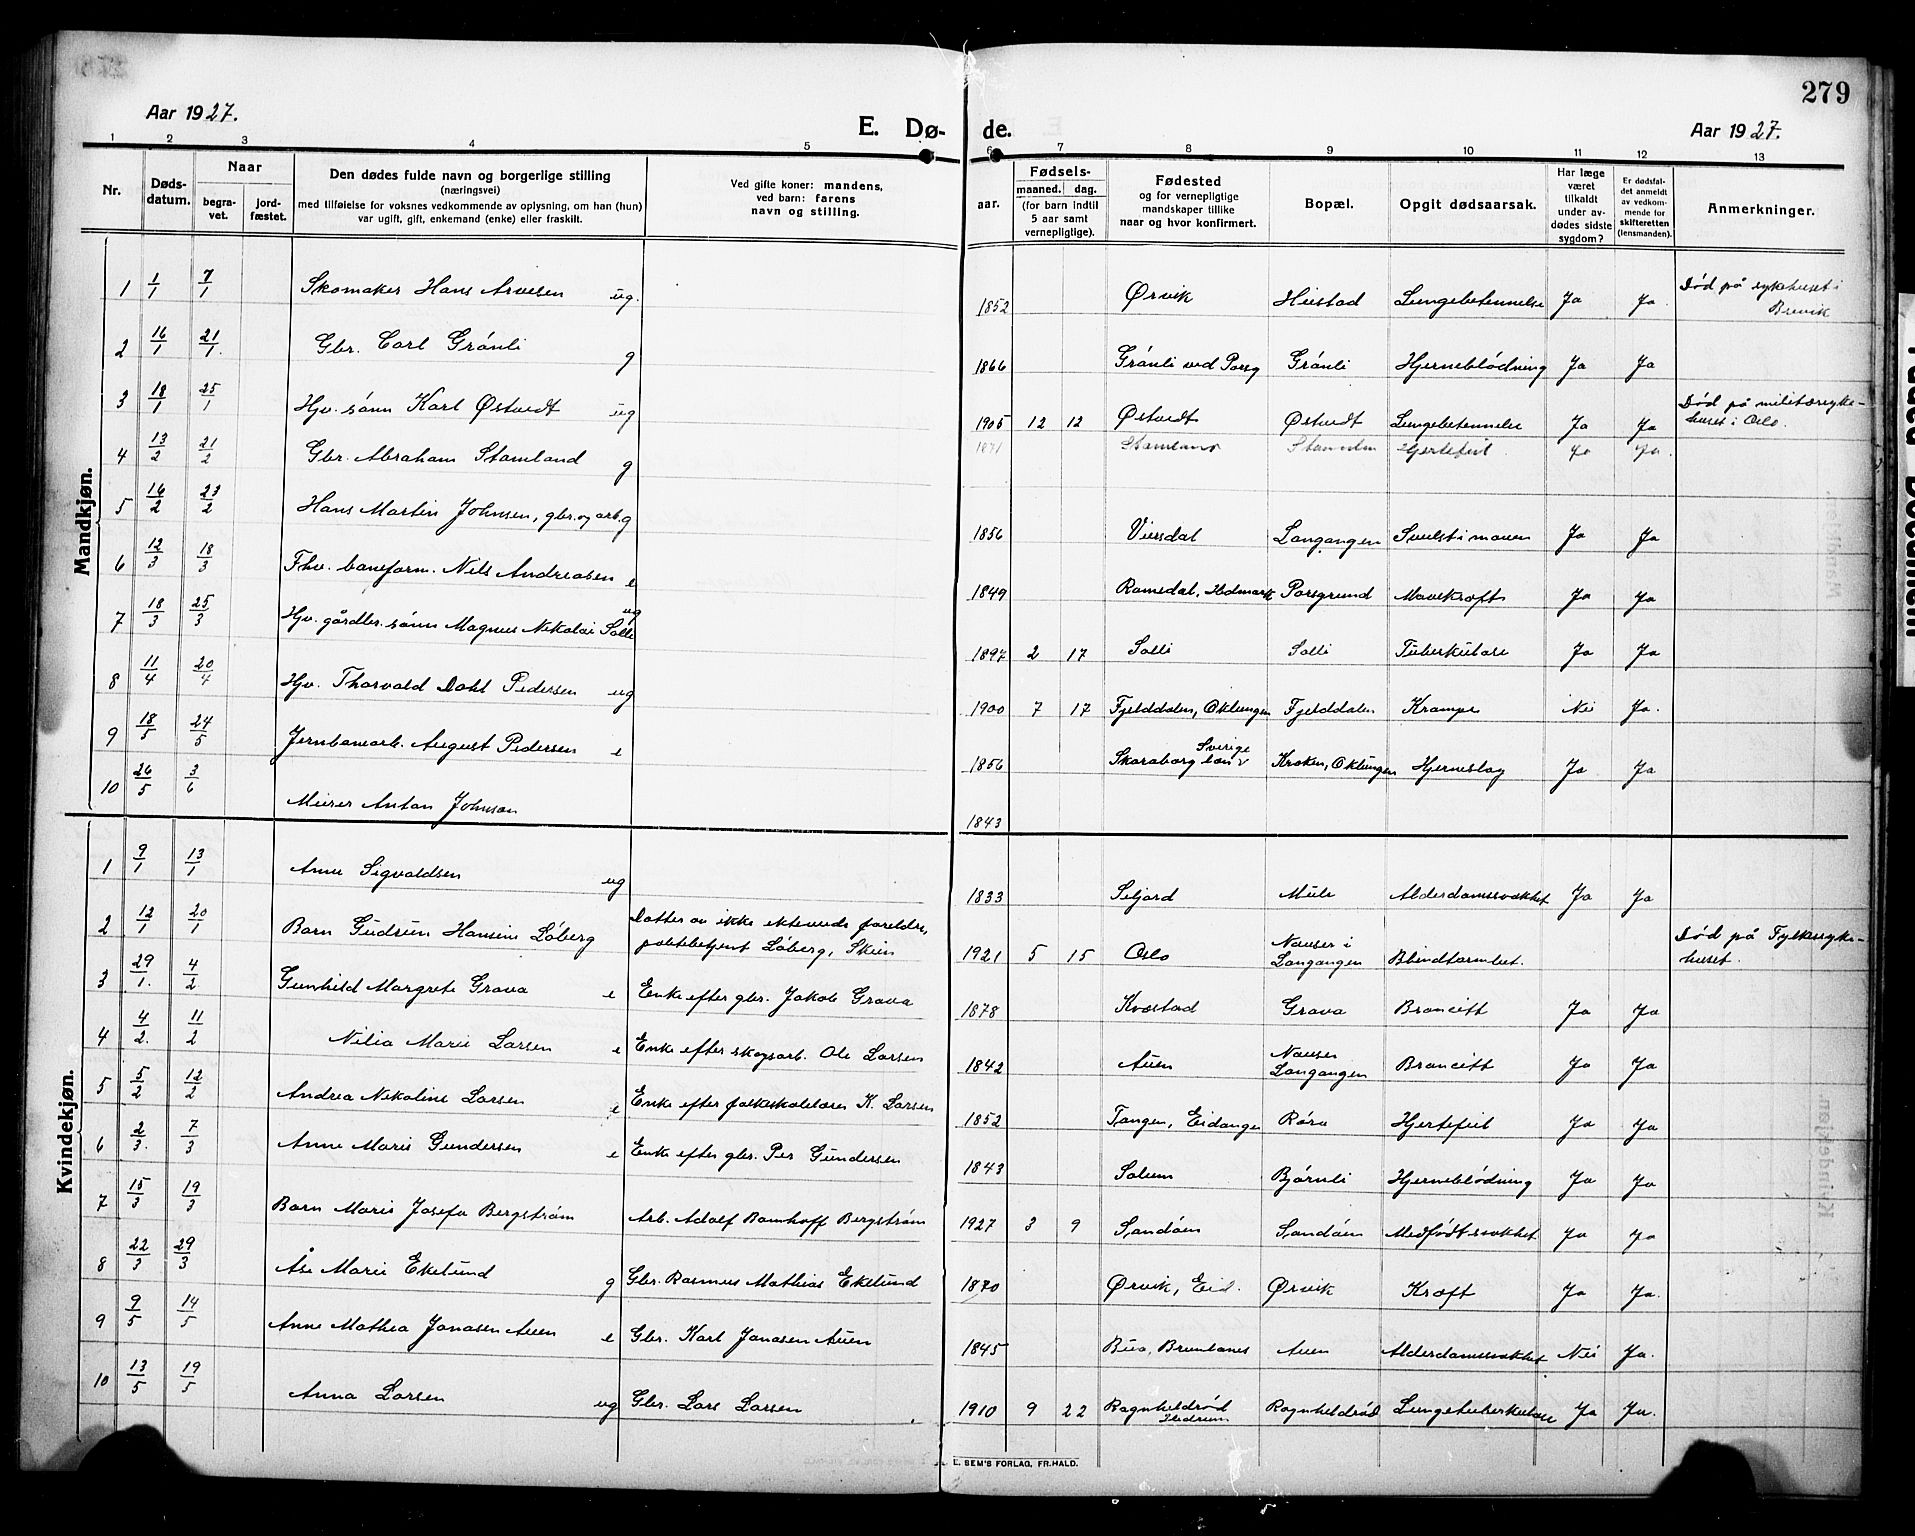 279
Aar 1927.
E. Dø- de.
Aar 1927.
1 2 3 4 5 6 7 8 9 10 11 12 13
Nr.
Døds-
datum.
Naar
begra-
vet.
jord-
fæstet.
Den dødes fulde navn og borgerlige stilling
(næringsvei)
med tilføielse for voksnes vedkommende av oplysning, om han (hun)
var ugift, gift, enkemand (enke) eller fraskilt.
Ved gifte koner: mandens,
ved barn: farens
navn og stilling.
Fødsels-
aar.
maaned. dag.
(for barn indtil
5 aar samt
vernepligtige).
Fødested
og for vernepligtige
mandskaper tillike
naar og hvor konfirmert.
Bopæl.
Opgit dødsaarsak.
Har læge
været
tilkaldt
under av-
dødes sidste
sygdom?
Er dødsfal-
det anmeldt
av vedkom-
mende for
skifteretten
(lensmanden).
Anmerkninger.
Mandkjøn.
1 1/1 7/1 Skomaker Hans Arvesen ug. 1852 Ørvik Hustad Lungebetennelse Ja Ja Død på sykehuset i
Brevik
2 16/1 21/1. Gbr. Carl Grönli g 1866 Grönli ved Porsg Grönli Hjerneblödning Ja Ja
3 18/1 25/1 Hjv. sönn Karl Østvedt ug 1905 12 12 Østvedt Østvedt Lungebetennelse Ja Ja Død på militæresyke-
huset i Oslo.
4 13/2 21/2 Gbr. Abraham Stamland g 1871 Stamland Hjertefeil Ja Ja.
5 16/2 23/2 Hans Martin Johnsen, gbr. og arb. g 1856 Viersdal Langangen Svulst i maven Ja Ja
6 12/3 18/3 Fhv. baneform. Nils Andreasen e 1849 Romedal, Hedmark Porsgrund Mavekræft Ja Ja
7 18/3 25/3 Hjv. gårdbr. sönn Magnus Nikolai Solli ug 1897 2 17 Solli Solli Tuberkulose Ja Ja
8 11/4 20/4 Hjv. Thorvald Dahl Pedersen ug 1900 7 17 Fjelddalen, Oklungen Fjelddalen Krampe Nei Ja.
9 18/5 24/5 Jernbanearb. August Pedersen e 1856 Skaraborg län Sverige Kroken, Oklungen Hjerneslag Ja Ja
10 26/5 3/6 Murer Anton Johnson 1843
Kvindekjøn.
1 9/1 13/1 Anne Sigvaldsen ug 1833 Seljord Mule Alderdomssvakhet Ja Ja
2 12/1 20/1 Barn Gudrun Hansine Löberg Datter av ikke ektevede foreldre,
politibetjent Löberg, Skien 1921 5 15 Oslo Nauser i
Langangen Blindtarmbet. Død på Fylkessyke-
huset.
3 29/1. 4/2 Gunhild Margrete Grava e Enke efter gbr. Jakob Grava 1878 Kvestad Grava Broncitt Ja Ja
4 4/2. 11/2 Nilia Marie Larsen e Enke efter skogsarb. Ole Larsen 1842 Auen Nauser
Langangen Broncitt Ja Ja
5 5/2 12/2 Andrea Nikoline Larsen e Enke efter folkeskolelærer K. Larsen 1852 Tangen, Eidanger Röra Hjertefeil Ja Ja
6 2/3. 7/3 Anne Marie Gundersen e Enke efter gbr. Per Gundersen 1843 Solum Bjørnli Hjerneblödning Ja Ja
7 15/3 19/3 Barn Marie Josefa Bergström Arb. Adolf Bomhoff Bergström 1927 3 9 Sandöen Sandöen Medfödt svakhet Ja Ja
8 22/3 29/3 Åse Marie Ekelund g Gbr. Rasmus Mathias Ekelund 1870 Ørvik, Eid. Ørvik Kræft Ja Ja.
9 9/5 14/5 Anne Mathea Jonasen Auen e Gbr. Karl Jonasen Auen 1845 Bua, Brunlanes Auen Alderdomssvakhet Nei Ja.
10 13/5 19/5 Anna Larsen ug Gbr. Lars Larsen 1910 9 22 Ragnhildrød
Hedrum Ragnhildrød Lungetuberkulose Ja Ja.
E. SEM'S FORLAG, FR.HALD.